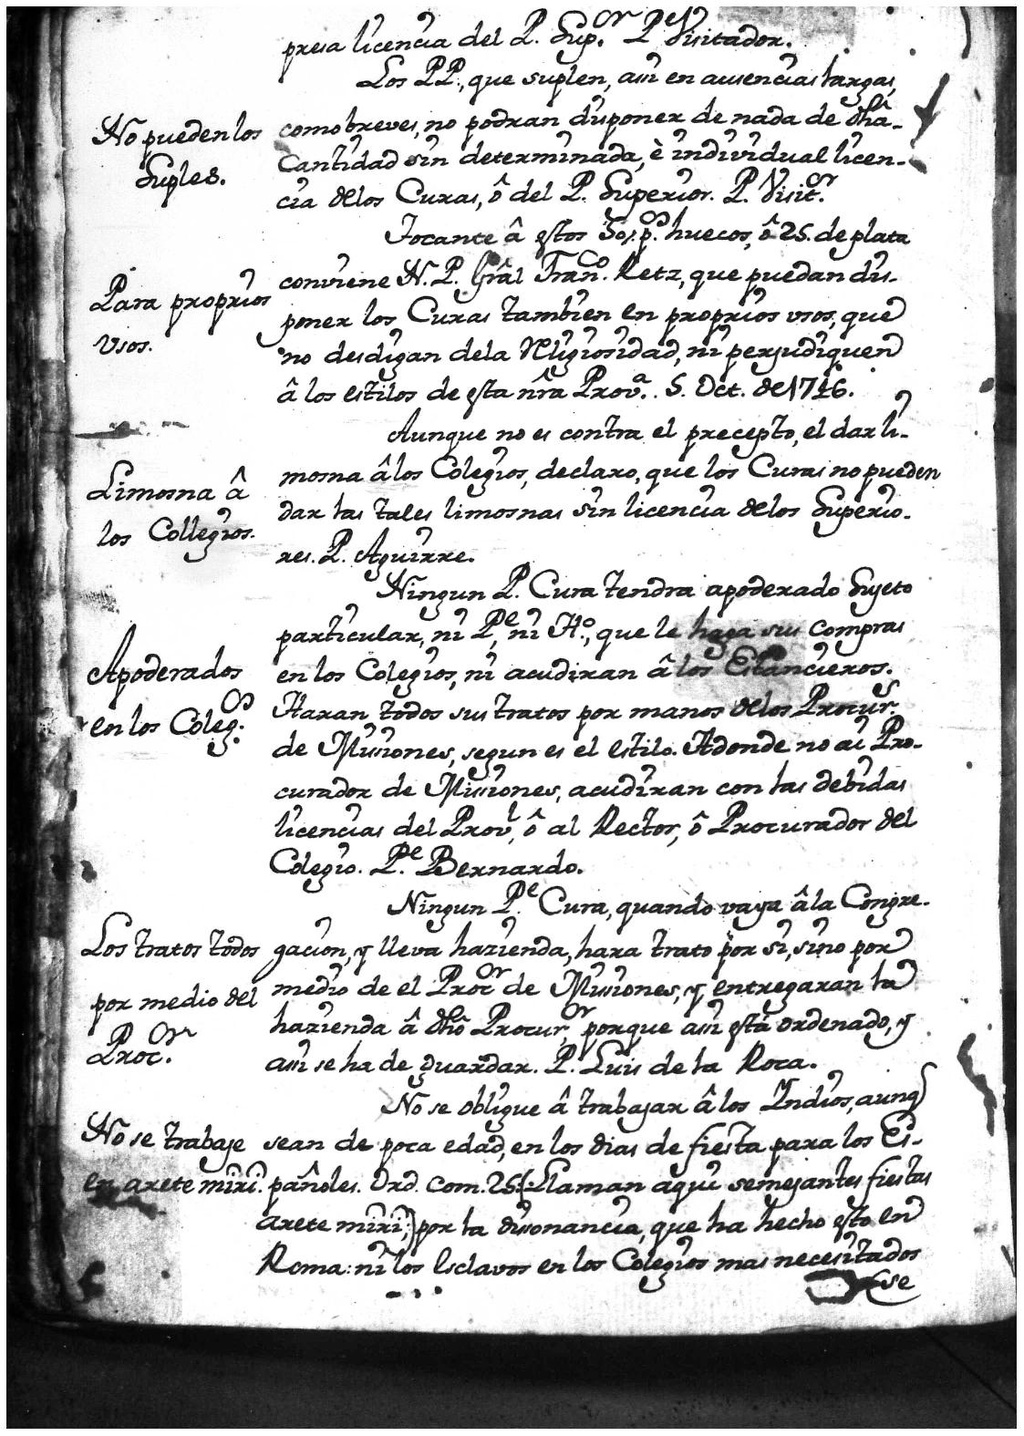 presa licencia del P. Sup.or P.e Visitador.
Los PP., que suplen, assi en ausencias largas,
No pueden los
Suples.
como breves, no podran disponer de nada de dhâ
Cantidad sin determinada, è individual licen-
cia delos Curas, ô del P. Superior. P. Visit.or
Tocante â estos 50. p.s huecos, ô 25. de plata
Para proprios
Vsos.
conviene N. P. Grâl Fran.co Retz, que puedan dis-
poner los Curas tambien en proprios vsos, que
no desdigan dela Religiosidad, ni perjudiquen
â los estilos de esta nrâ Prov.a 5. Oct. de 1716.
Aunque no es contra el precepto, el dar li-
Limosna â
los Collegios.
mosna âlos Colegios, declaro, que los Curas no pueden
dar las tales limosnas sin licencia delos Superio-
res. P. Aguirre.
Ningun P. Cura tendra apoderado Sujeto
Apoderados
en los Coleg.os
particular, ni P.e, ni H.o, que le haga sus compras
en los Colegios, ni acudiran â los Estancieros.
Haran todos sus tratos por manos delos Procur.s
de Missiones, segun es el estilo. Adonde no ai Pro-
curador de Missiones, acudiran con las debidas
licencias del Prov.l, ô al Rector, ô Procurador del
Colegio. P.e Bernardo.
Ningun P.e Cura, quando vaya âla Congre-
Los tratos todos
por medio del
Proc.or
gacion, y lleva hazienda, hara trato por si, sino por
medio de el Proc.or de Missiones, y entregaran la
hazienda â dhô Procur.or porque assi està ordenado, y
assi se ha de guardar. P. Luis de la Roca.
No se obligue â trabajar â los Indios, aunq
No se trabaje
en arete miri.
sean de poca edad, en los dias de fiesta para los Es-
pañoles. Ord. com. 25. (Llaman aqui semejantes fiestas
arete miri;) por la disonancia, que ha hecho esto en
Roma: ni los Esclavos en los Colegios mas necesitados
se